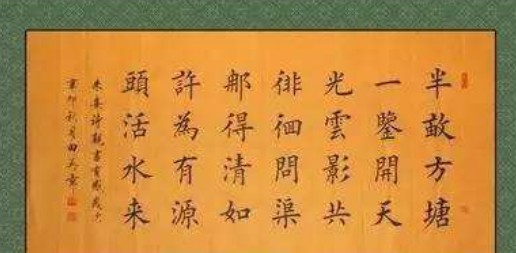 半畝方塘
一鑒開天
光雲影共
徘徊問渠
那得清如
許為有源
頭活水来
朱熹詩觀書有感
辛卯秋月田